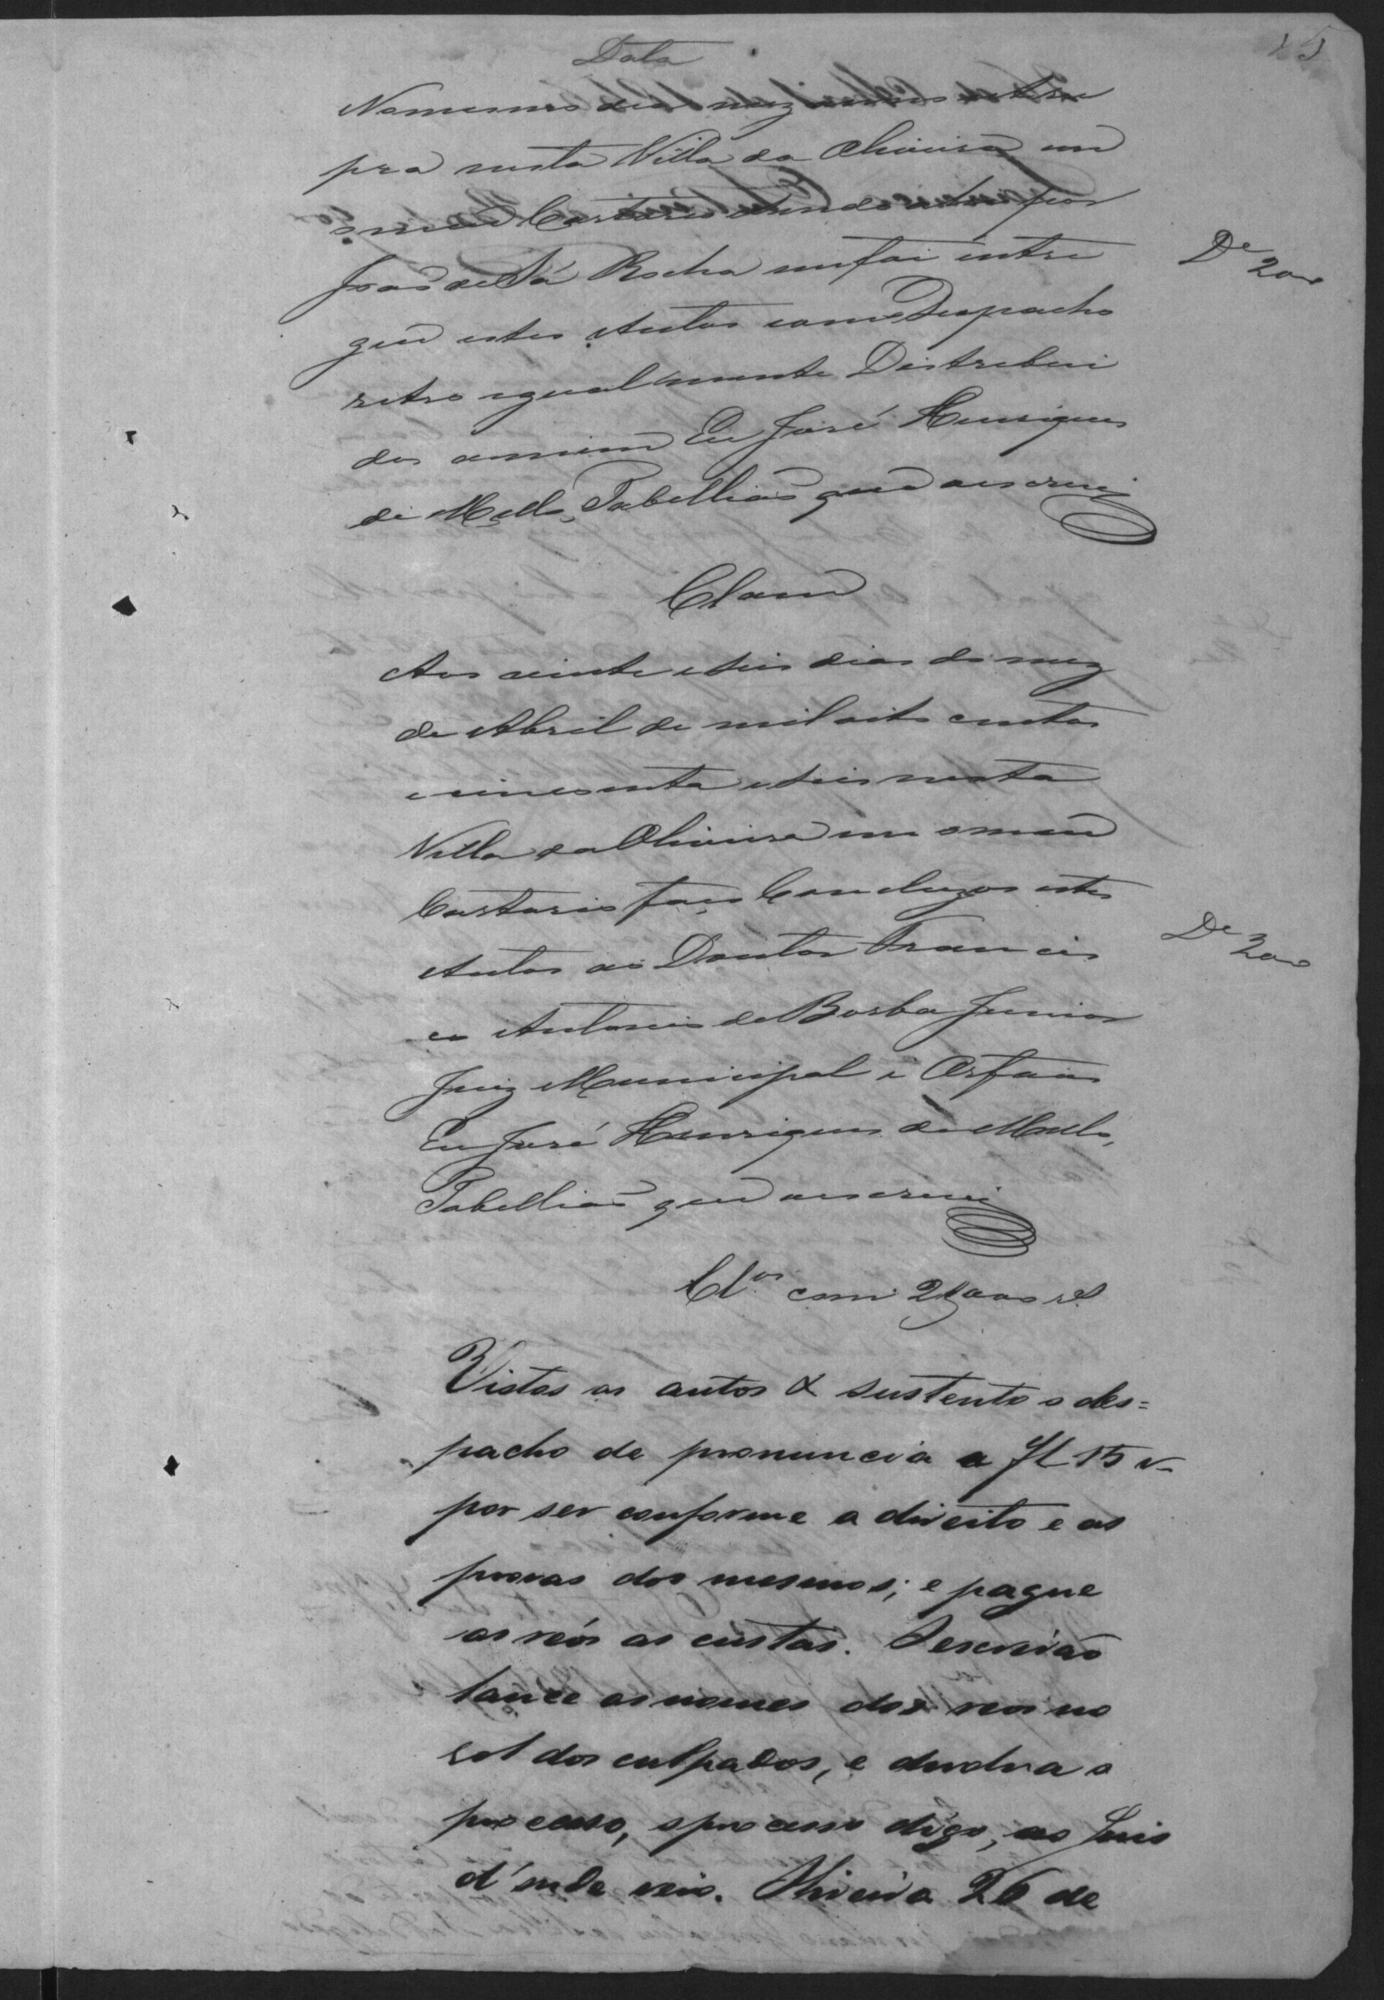 25
Data
No mesmo dia mez e anno retro
pra nesta Villa da Oliveira em
o meu Cartorio sendo ahi por
João de Sá Rocha me foi entre
gue estes Autos com o Despacho
retro igualmente Destrebui
dos a mim Eu José Henriques
de Mello, Tabellião que o escrevi
De 200
Clam
Aos vinte e seis dias do mez
de Abril de mil oito centos
e cincoenta e seis nesta
Villa da Oliveira em o meu
Cartorio faço Concluzos estes
Autos ao Doutor Francis
co Antonio de Borba Junior
Juiz Municipal e Orfãos
Eu José Henriques de Mello,
Tabellião que o escrevi
De 200
Cl.os com rs
Vistos os autos & sustento o des=
pacho de pronuncia a fl 15 v
por ser conforme a direito e as
provas dos mesmos; e pague
os réos as custas. O escrivão
lance os nomes dos reos no
rol dos culpados, e devolva o
processo, o processo digo, ao Juis
d'onde veio. Oliveira 26 de